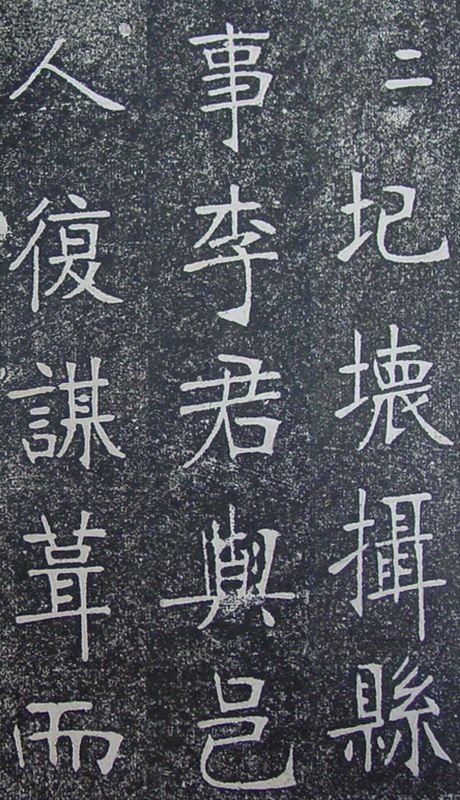 二圮壞攝縣
事李君與邑
人復謀葺而